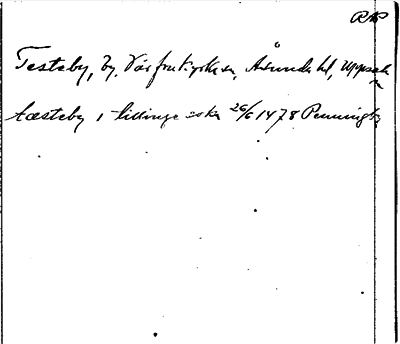 RAP
Testeby, by, Vårfrukyrka sn, Åsunda hd, Uppsala
ln
tæsteby i tidinge sokn 26/6 1478 Penningby